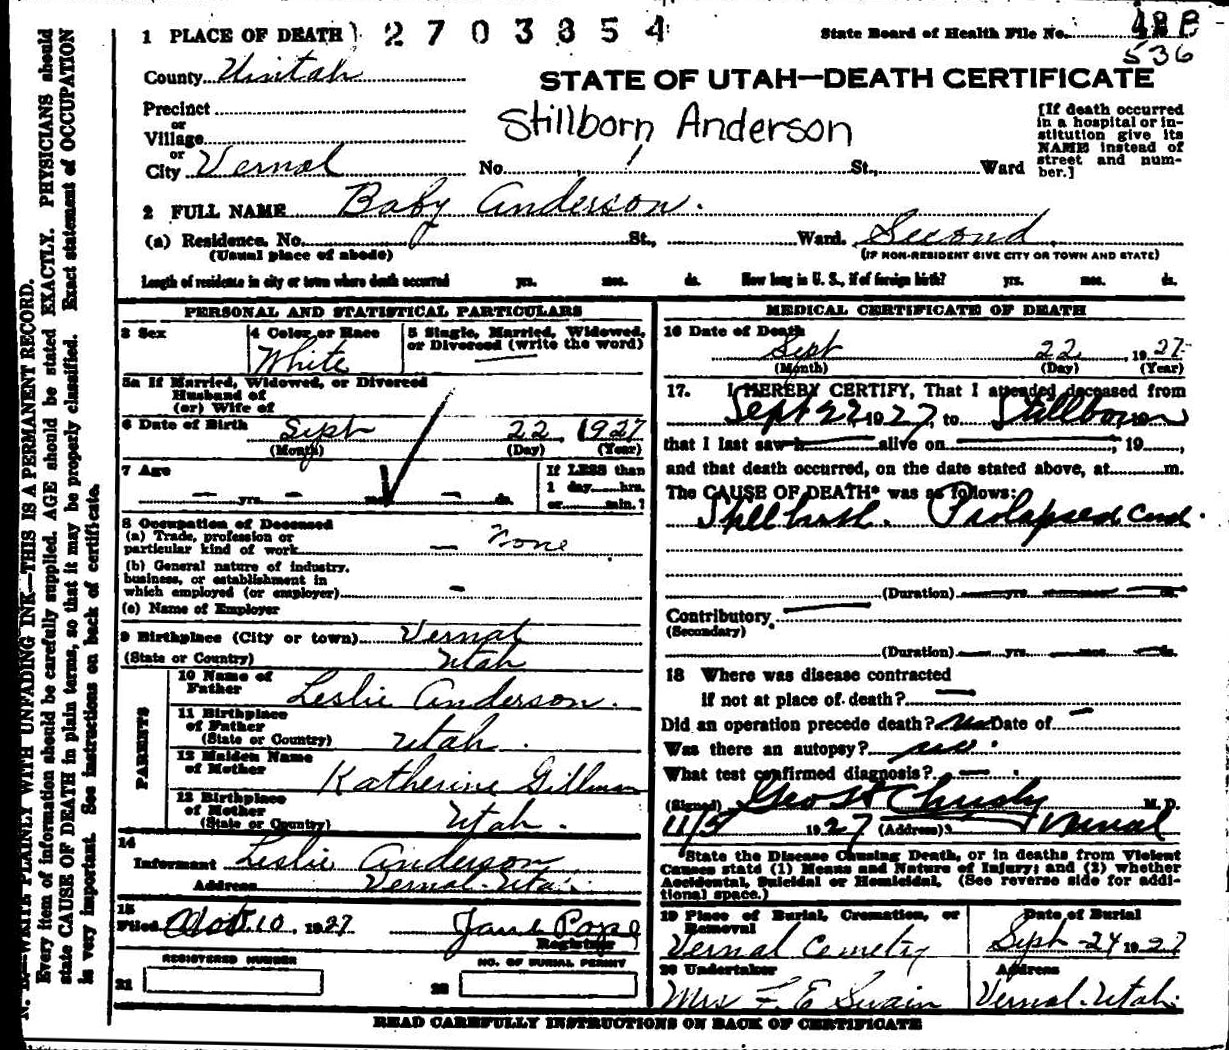 1 PLACE OF DEATH 2703354 State Board of Health File No. 48 B
536
County Uintah STATE OF UTAH—DEATH CERTIFICATE
Precinct
or
Village
or
City Vernal No. St., Ward
Stillborn Anderson
[If death occurred in a hospital or institution give its NAME instead of street and number.]
2 FULL NAME Baby Anderson.
(a) Residence. No. St., Ward. Second
(Usual place of abode) (IF NON-RESIDENT GIVE CITY OR TOWN AND STATE)
Length of residence in city or town where death occurred yrs. mos. ds. How long in U. S., if of foreign birth? yrs. mos. ds.
PERSONAL AND STATISTICAL PARTICULARS
3 Sex 4 Color or Race 5 Single, Married, Widowed,
or Divorced (write the word)
White
5a If Married, Widowed, or Divorced
Husband of
(or) Wife of
6 Date of Birth Sept 22, 1927
(Month) (Day) (Year)
7 Age If LESS than
1 day hrs.
— yrs. — mos. — ds. or min.?
8 Occupation of Deceased
(a) Trade, profession or
particular kind of work — None
(b) General nature of industry,
business, or establishment in
which employed (or employer) —
(c) Name of Employer
9 Birthplace (City or town) Vernal
(State or Country) Utah
PARENTS
10 Name of
Father Leslie Anderson.
11 Birthplace
of Father
(State or Country) Utah.
12 Maiden Name
of Mother Katherine Gillman
13 Birthplace
of Mother
(State or Country) Utah.
14
Informant Leslie Anderson
Address Vernal-Utah
15
Filed 10, 1927 Jane Pope
Registrar
REGISTERED NUMBER NO. OF BURIAL PERMIT
21 22
MEDICAL CERTIFICATE OF DEATH
16 Date of Death
Sept 22, 1927
(Month) (Day) (Year)
17. I HEREBY CERTIFY, That I attended deceased from
Sept 22 1927, to Stillborn 19
that I last saw h alive on , 19 ,
and that death occurred, on the date stated above, at m.
The CAUSE OF DEATH* was as follows:
Still birth. Prolapsed Cord.
(Duration) yrs. mos. ds.
Contributory
(Secondary)
(Duration) yrs. mos. ds.
18 Where was disease contracted
if not at place of death? —
Did an operation precede death? no Date of —
Was there an autopsy? no.
What test confirmed diagnosis? — .
(Signed) Geo H Christy M. D.
11/5 1927 (Address) Vernal
*State the Disease Causing Death, or in deaths from Violent
Causes statd (1) Means and Nature of Injury; and (2) whether
Accidental, Suicidal or Homicidal. (See reverse side for addi-
tional space.)
19 Place of Burial, Cremation, or Date of Burial
Removal
Vernal Cemetry Sept-24 1927
20 Undertaker Address
Mrs F. E Swain Vernal-Utah.
READ CAREFULLY INSTRUCTIONS ON BACK OF CERTIFICATE
N. B.—WRITE PLAINLY WITH UNFADING INK—THIS IS A PERMANENT RECORD.
Every item of information should be carefully supplied. AGE should be stated EXACTLY. PHYSICIANS should
state CAUSE OF DEATH in plain terms, so that it may be properly classified. Exact statement of OCCUPATION
is very important. See instructions on back of certificate.